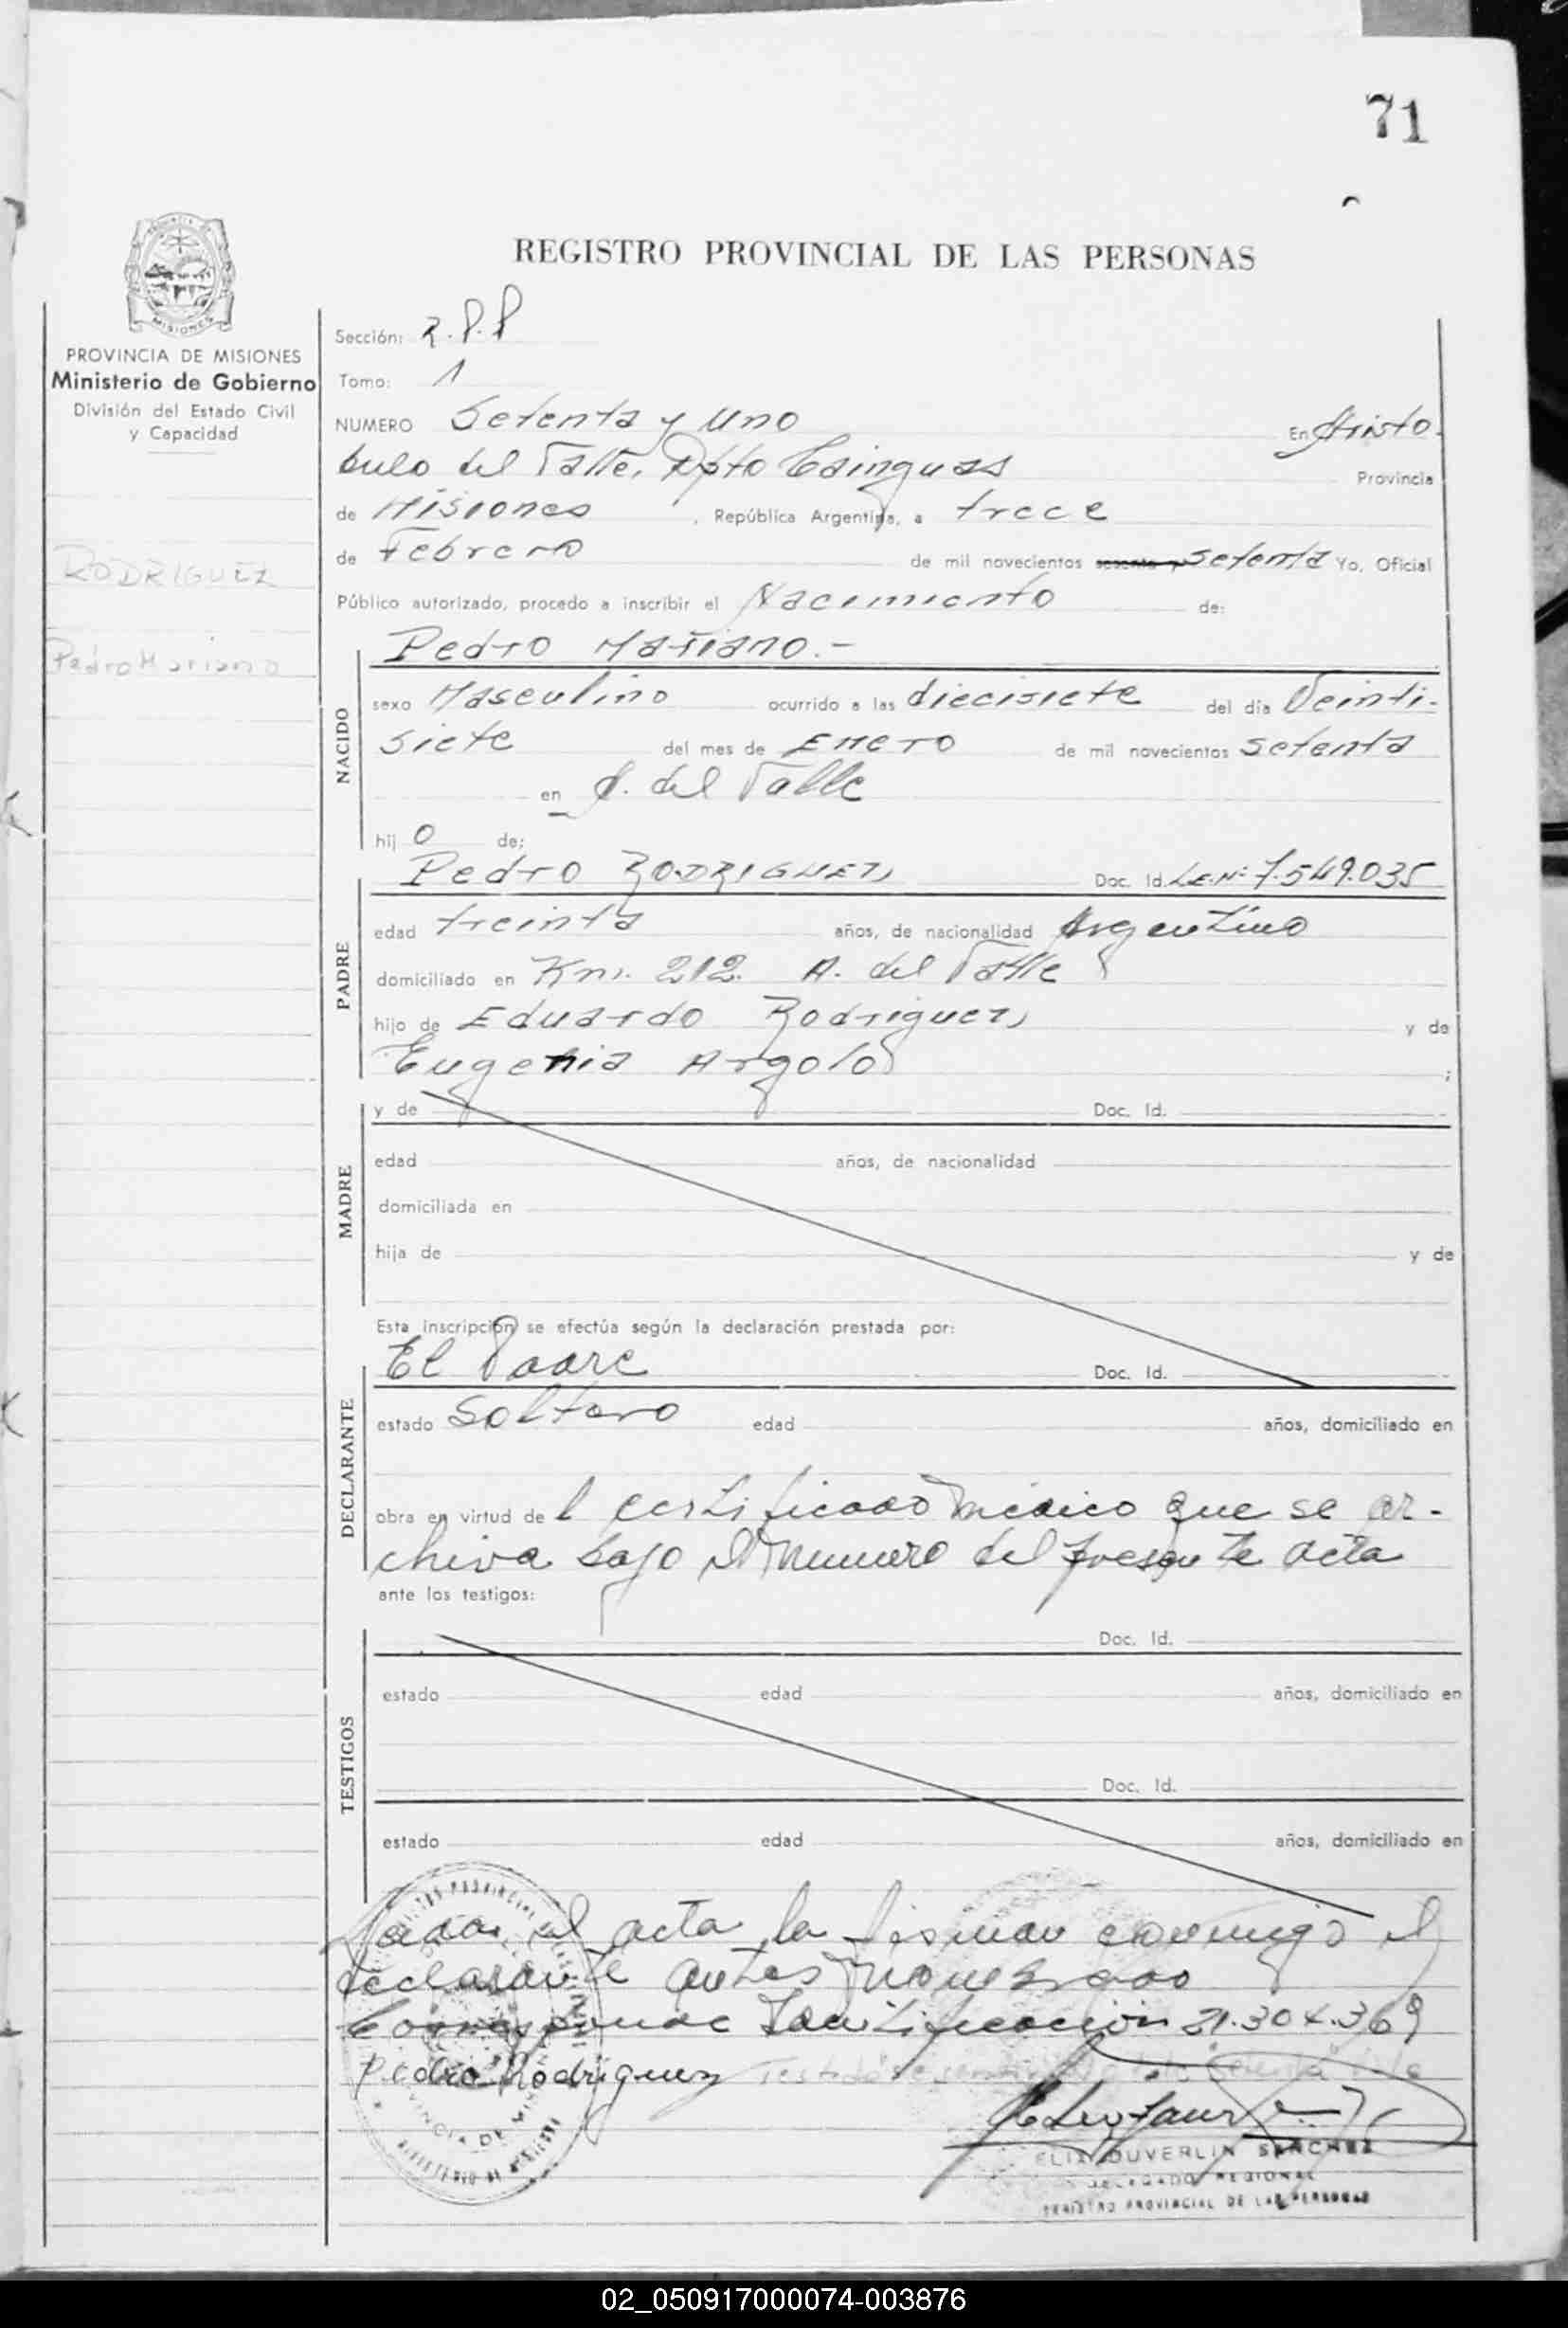 71
REGISTRO PROVINCIAL DE LAS PERSONAS
MISIONES
PROVINCIA DE MISIONES
Ministerio de Gobierno
División del Estado Civil
y Capacidad
RODRIGUEZ
Pedro Mariano
Sección: R.P.P
Tomo: 1
NUMERO Setenta y Uno En Aristo-
bulo del Valle, Dpto Cainguas Provincia
de Misiones, República Argentina, a trece
de Febrero de mil novecientos sesenta y Setenta Yo, Oficial
Público autorizado, procedo a inscribir el Nacimiento de:
Pedro Mariano.-
NACIDO
sexo Masculino ocurrido a las diecisiete del día Veinti-
siete del mes de Enero de mil novecientos setenta
en A. del Valle
hij o de;
PADRE
Pedro RODRIGUEZ Doc. Id. L.E.Nº 7.549.035
edad treinta años, de nacionalidad Argentino
domiciliado en Km. 212. A. del Valle
hijo de Eduardo Rodriguez y de
Eugenia Argolo ;
MADRE
y de Doc. Id.
edad años, de nacionalidad
domiciliada en
hija de y de
Esta inscripción se efectúa según la declaración prestada por:
DECLARANTE
El Padre Doc. Id.
estado Soltero edad años, domiciliado en
obra en virtud de l certificado médico que se ar-
chiva bajo el numero del presente acta
ante los testigos:
TESTIGOS
Doc. Id.
estado edad años, domiciliado en
Doc. Id.
estado edad años, domiciliado en
Leida el acta la firman conmigo el
declarante antes nombrado
Corresponde Identificación 21.304.369
Pedro Rodriguez
DUVERLIN SANCHEZ
DELEGADO REGIONAL
REGISTRO PROVINCIAL DE LAS PERSONAS
02_050917000074-003876